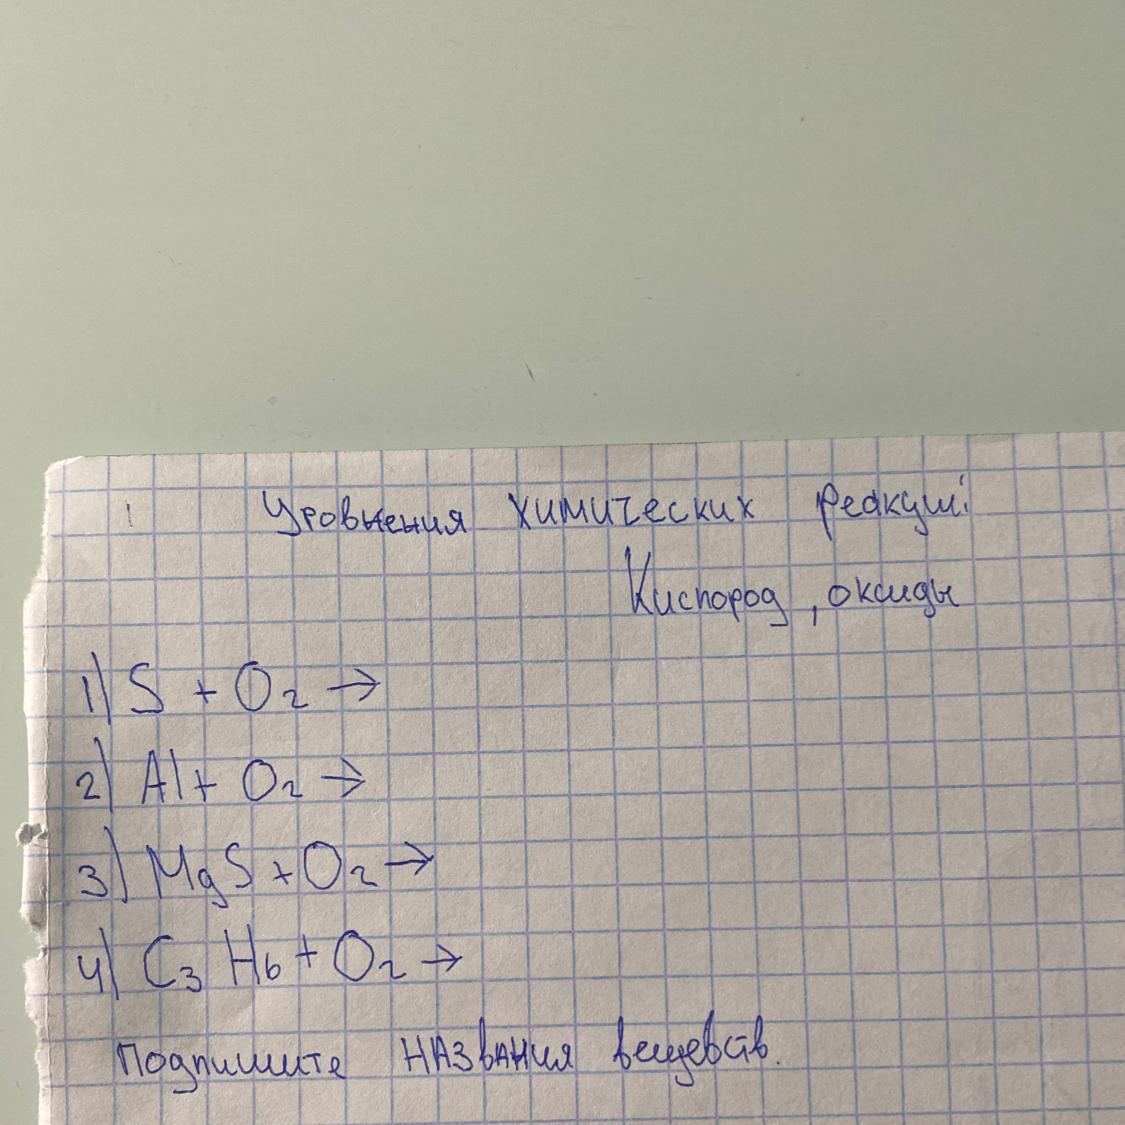 Уровнения химических реакций
Кислород, оксиды
1) S + O2 →
2) Al + O2 →
3) MgS + O2 →
4) C3 H6 + O2 →
Подпишите названия вещевств.